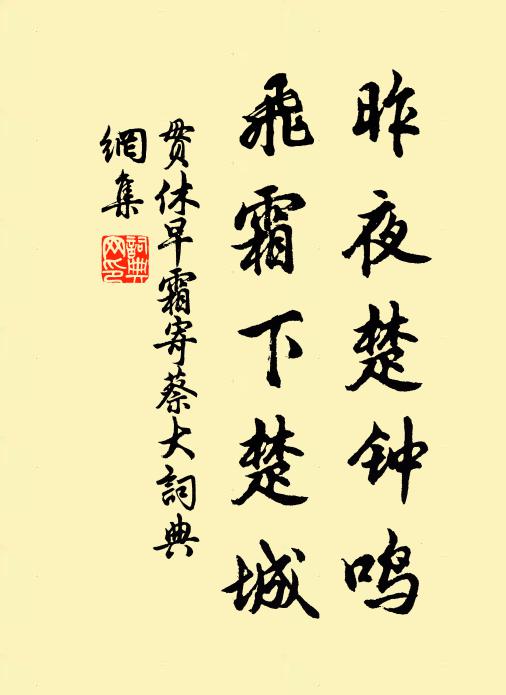 昨夜楚钟鸣
飞霜下楚城
贯休早霜寄蔡大詞典
網集
詞典
网印